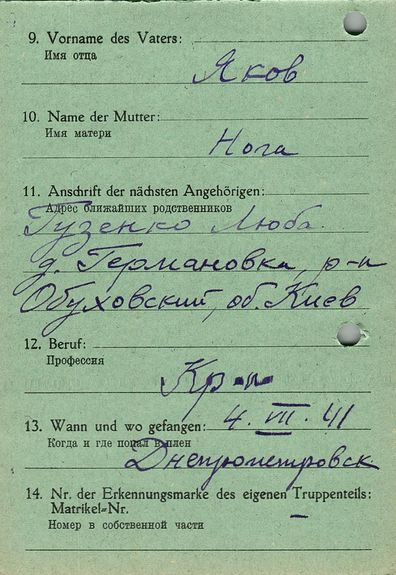 9. Vorname des Vaters:
Имя отца
Яков
10. Name der Mutter:
Имя матери
Нога
11. Anschrift der nächsten Angehörigen:
Адрес ближайших родственников
Гузенко Люба
д. Германовка, р-н
Обуховский, об. Киев
12. Beruf:
Профессия
Кр-н
13. Wann und wo gefangen: 4. VIII. 41
Когда и где попал в плен
Днепропетровск
14. Nr. der Erkennungsmarke des eigenen Truppenteils:
Matrikel=Nr. –
Номер в собственной части